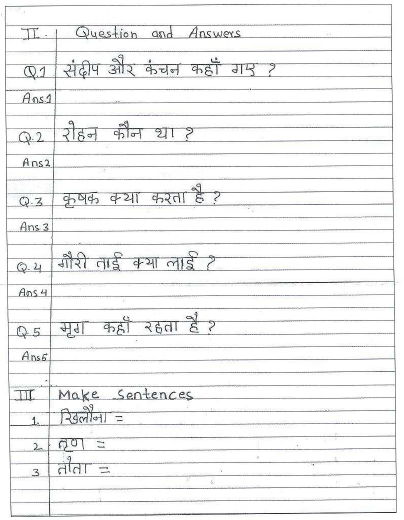 II. Question and Answers
Q.1 संदीप और कंचन कहाँ गए ?
Ans1
Q.2 रोहन कौन था ?
Ans2
Q.3 कृषक क्या करता है ?
Ans3
Q.4 गौरी ताई क्या लाई ?
Ans4
Q5 मृग कहाँ रहता है ?
Ans5
III Make Sentences
1. खिलौना =
2 तृण =
3 तोता =